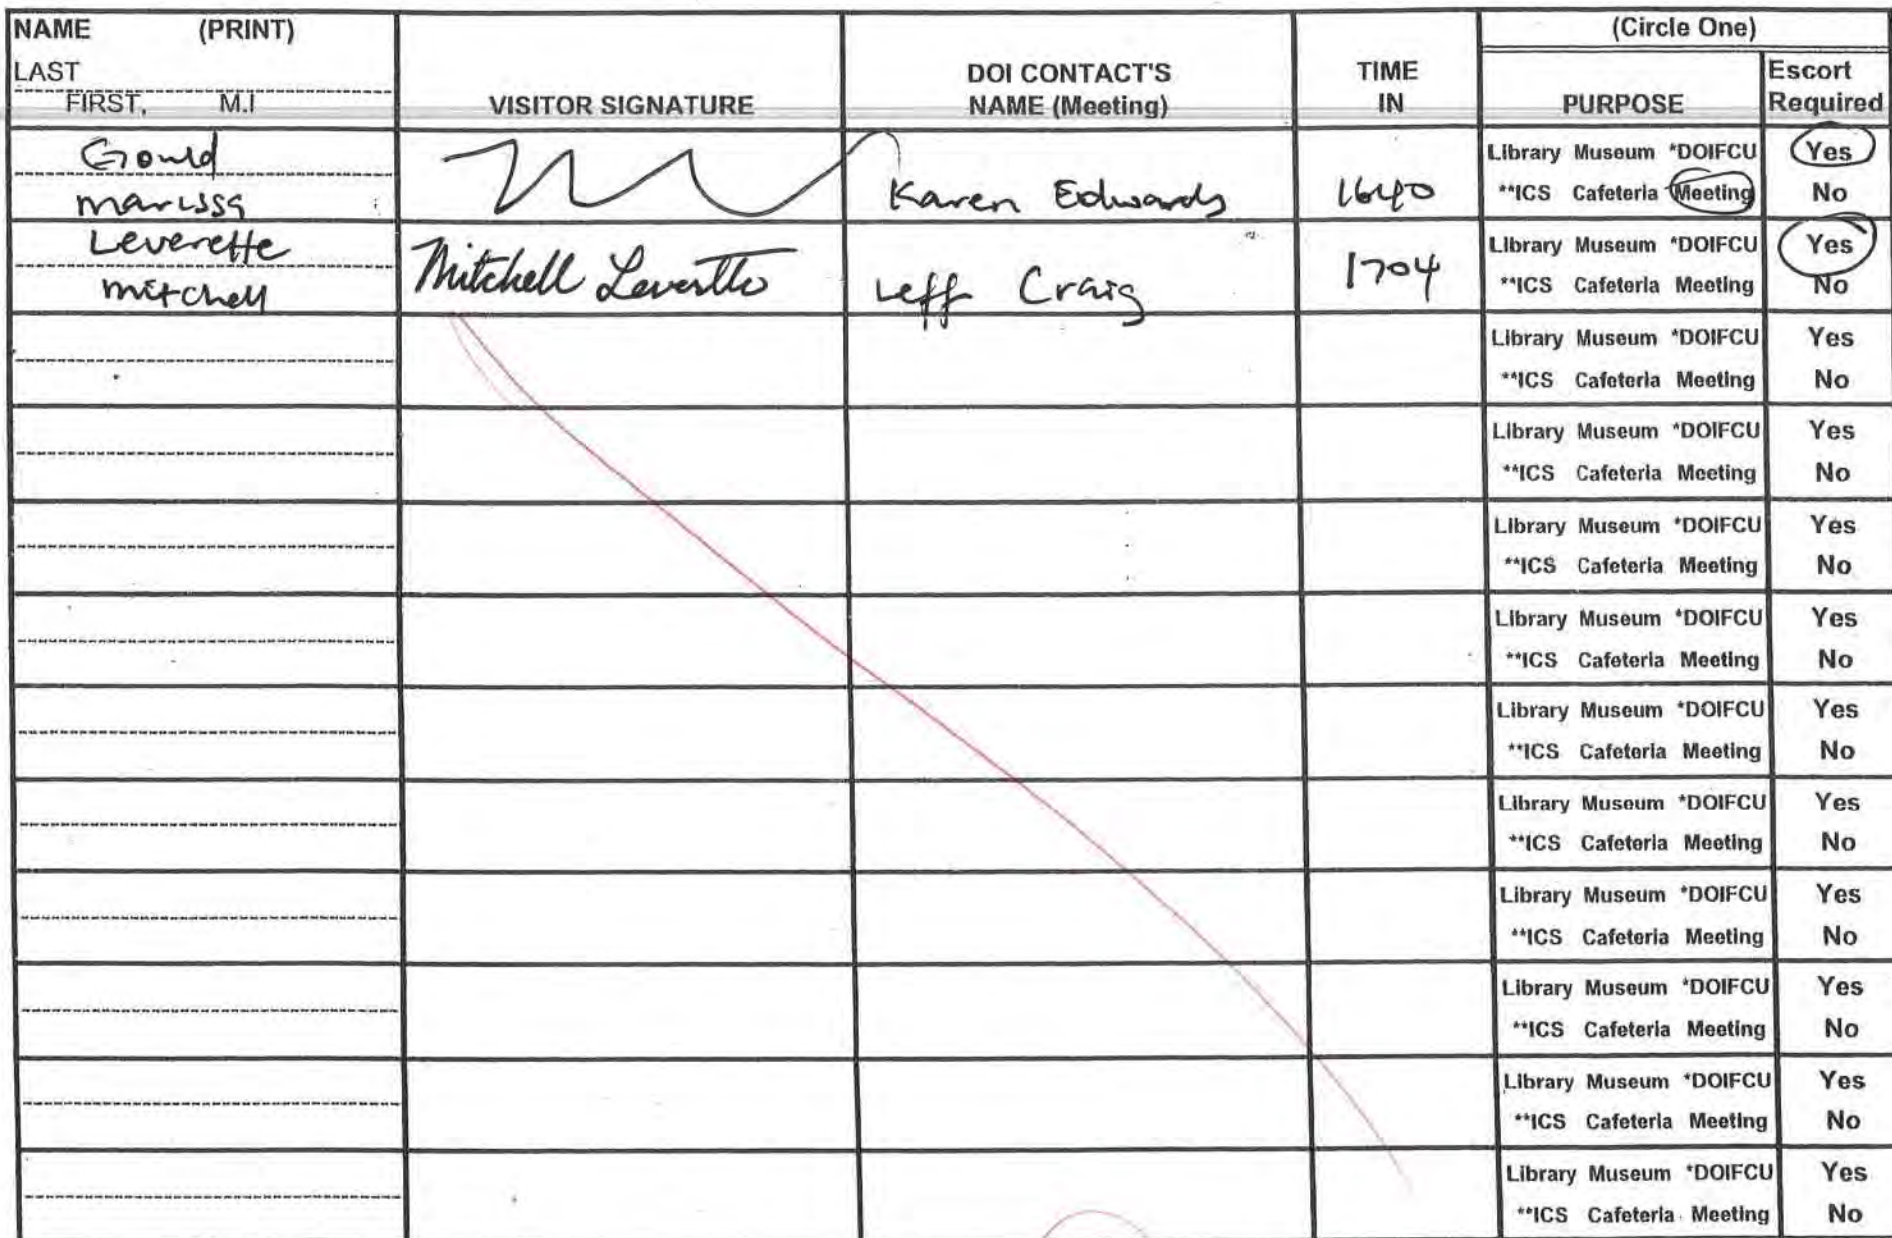 NAME (PRINT)
LAST
FIRST, M.I
VISITOR SIGNATURE
DOI CONTACT'S
NAME (Meeting)
TIME
IN
(Circle One)
PURPOSE
Escort
Required
Gould
Marissa
Karen Edwards
1640
Library Museum *DOIFCU
**ICS Cafeteria Meeting
Yes
No
Leverette
Mitchell
Mitchell Leverette
Craig
1704
Library Museum *DOIFCU
**ICS Cafeteria Meeting
Yes
No
Library Museum *DOIFCU
**ICS Cafeteria Meeting
Yes
No
Library Museum *DOIFCU
**ICS Cafeteria Meeting
Yes
No
Library Museum *DOIFCU
**ICS Cafeteria Meeting
Yes
No
Library Museum *DOIFCU
**ICS Cafeteria Meeting
Yes
No
Library Museum *DOIFCU
**ICS Cafeteria Meeting
Yes
No
Library Museum *DOIFCU
**ICS Cafeteria Meeting
Yes
No
Library Museum *DOIFCU
**ICS Cafeteria Meeting
Yes
No
Library Museum *DOIFCU
**ICS Cafeteria Meeting
Yes
No
Library Museum *DOIFCU
**ICS Cafeteria Meeting
Yes
No
Library Museum *DOIFCU
**ICS Cafeteria Meeting
Yes
No